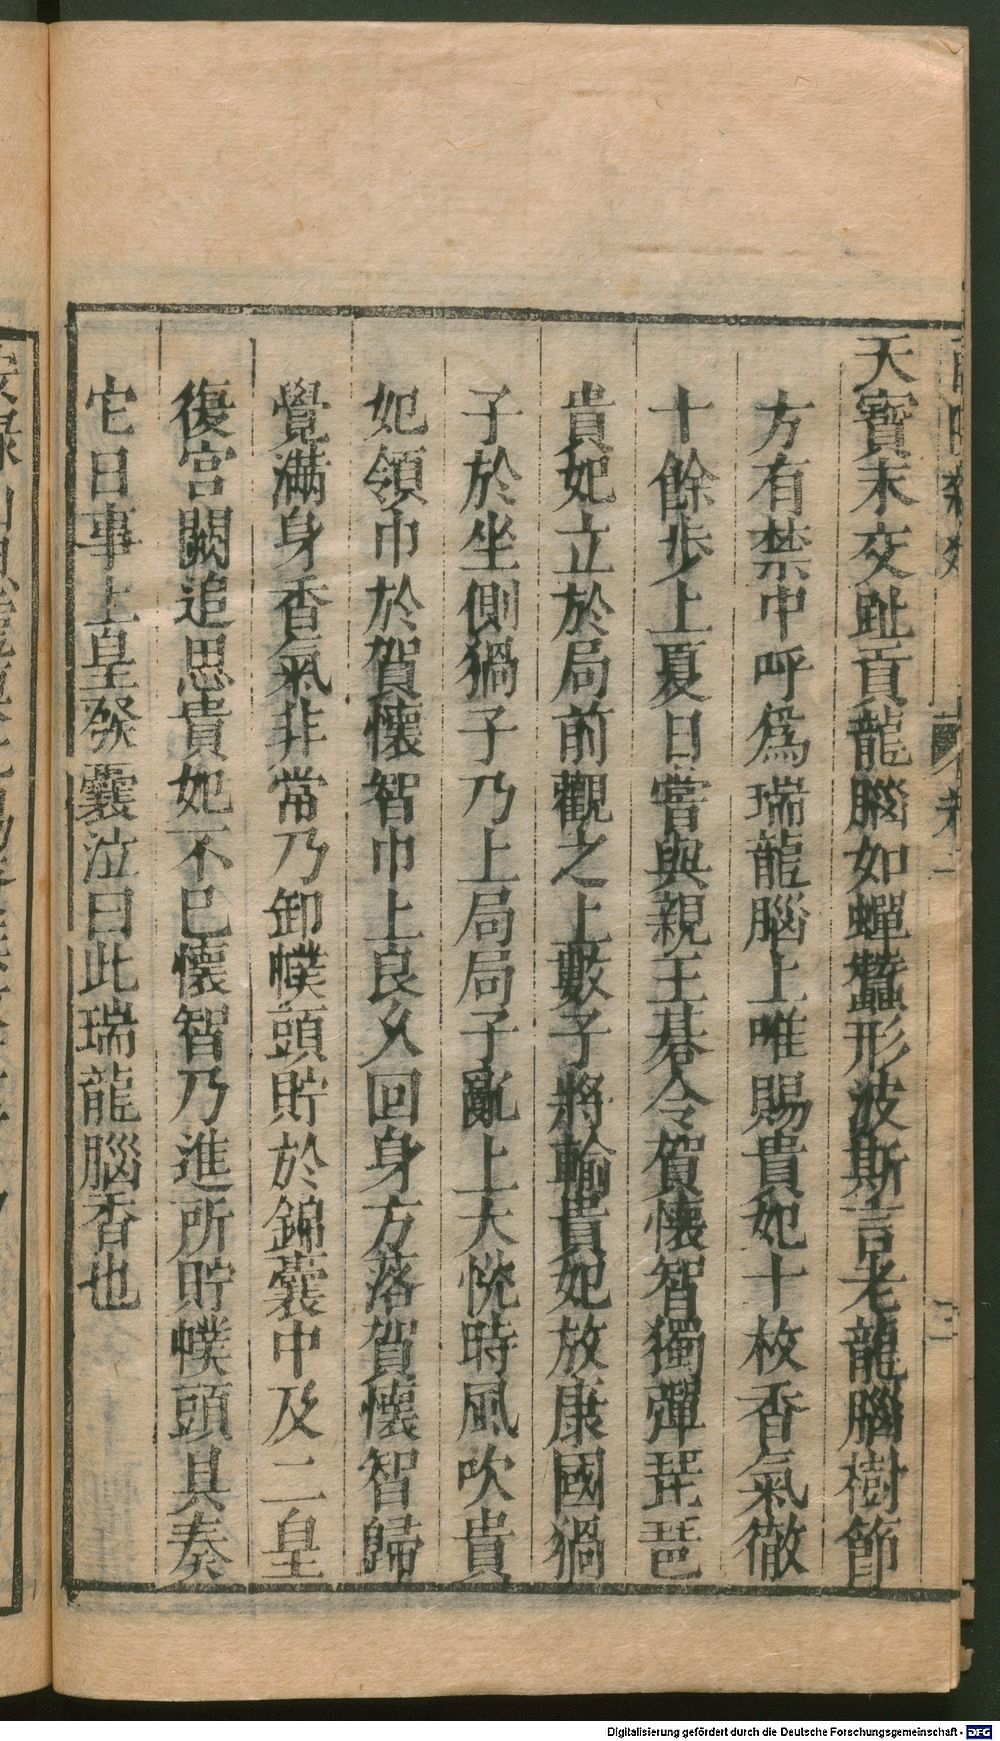 天寶末交趾貢龍腦如蟬蠶形波斯言老龍腦樹節
方有禁中呼爲瑞龍腦上唯賜貴妃十枚香氣徹
十餘步上夏日嘗與親王碁令賀懷智獨彈琵琶
貴妃立於局前觀之上數子將輸貴妃放康國猧
子於坐側猧子乃上局局子亂上大悅時風吹貴
妃領巾於賀懷智巾上良久回身方落賀懷智歸
覺滿身香氣非常乃卸幞頭貯於錦囊中及二皇
復宮闕追思貴妃不已懷智乃進所貯幞頭具奏
它日事上皇發囊泣曰此瑞龍腦香也
Digitalisierung gefördert durch die Deutsche Forschungsgemeinschaft - DFG